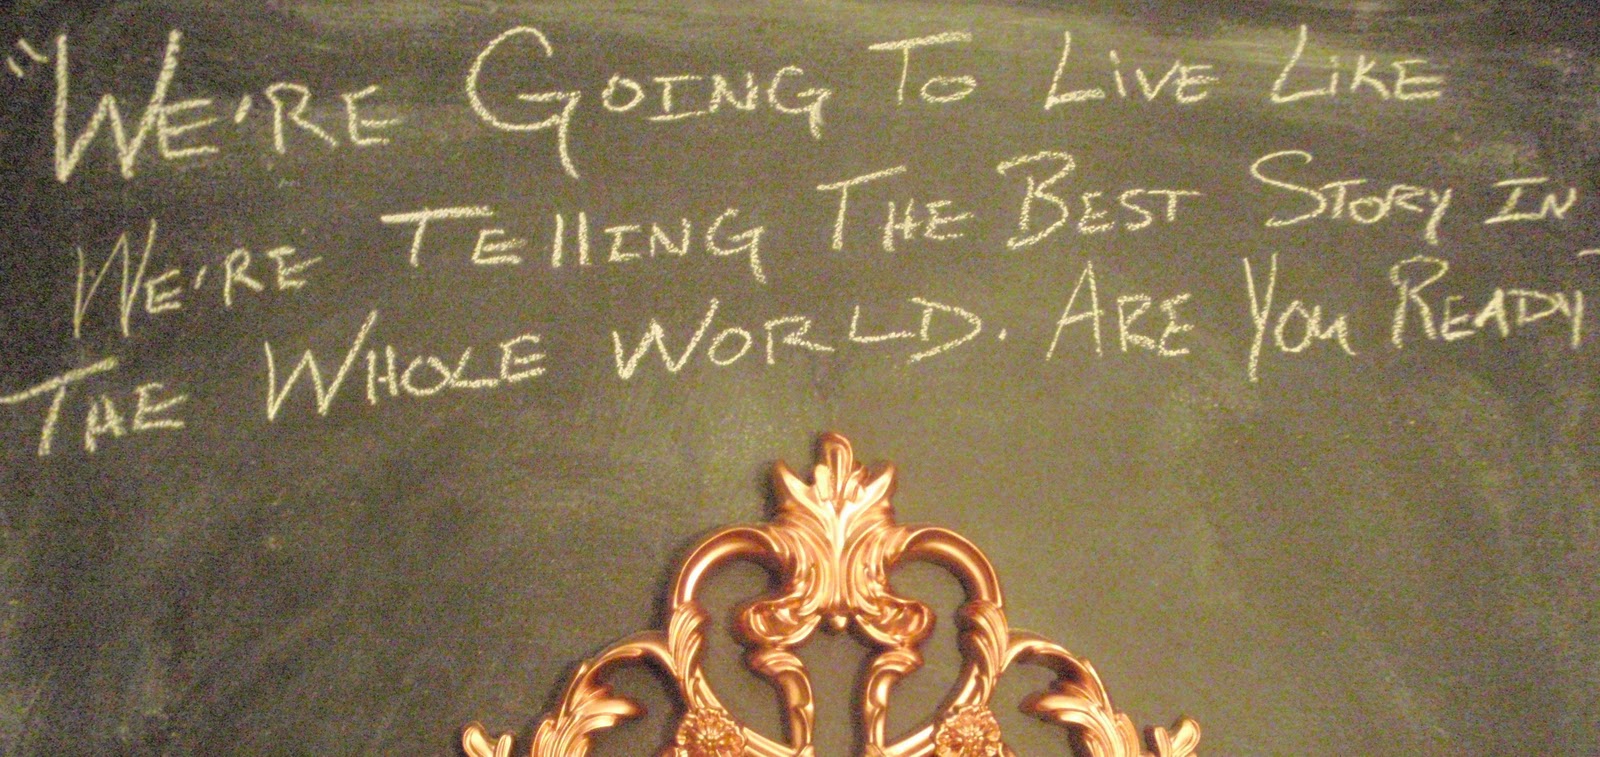 "We're Going To Live Like
We're Telling The Best Story In
The Whole World. Are You Ready